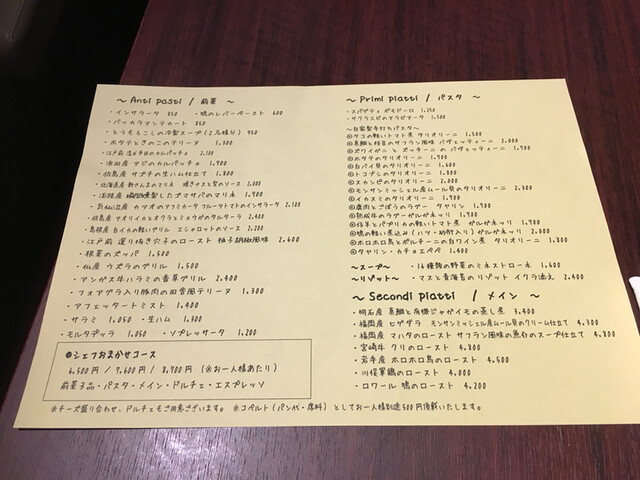 ～ Anti pasti / 前菜 ～
・インサラータ 850 ・鶏のレバーペースト 600
・バッカラマンテカート 850
・とうもろこしの冷製スープ(2名様分) 950
・ホタテときのこのテリーヌ 1,300
・江戸前 カルパッチョ 2,100
・アジのカルパッチョ 1,700
・佐島産 サザナの生ハム仕立て 1,800
・北海道産 焼きナスと梨のソース 2,200
・マリネ 1,900
・気仙沼産 カツオのアフミカータ フルーツトマトのインサラータ 2,200
・佐島産 アオリイカとオクラとミョウガのタルターラ 2,400
・島根産 白イカの軽いグリル エシャロットのソース 2,200
・江戸前 選り抜き穴子のロースト 柚子胡椒風味 2,600
・根菜のズッパ 1,500
・仙産 ウズラのグリル 1,500
・アンガス牛ハラミの香草グリル 2,400
・フォアグラ入り豚肉の田舎風テリーヌ 1,300
・アフェッタートミスト 1,400
・サラミ 1,050 ・生ハム 1,300
・モルタデッラ 1,050 ・ソプレッサータ 1,200
●シェフおまかせコース
6,500円 / 7,600円 / 8,700円 (※お一人様あたり)
前菜3品・パスタ・メイン・ドルチェ・エスプレッソ
～ Primi piatti / パスタ ～
・スパゲティ ポモドーロ 1,250
・サクラエビのアラビアータ 1,500
～自家製手打ちパスタ～
◎タコの軽いトマト煮 タリオリーニ 1,500
◎真鯛と枝豆のサフラン風味 パヴェッティーニ 2,000
◎ズワイガニとズッキーニの パヴェッティーニ 1,900
◎ホタテのタリオリーニ 1,900
◎白バイ貝のタリオリーニ 1,600
◎トコブシのタリオリーニ 1,800
◎スカンピのタリオリーニ 2,000
◎モンサンミッシェル産ムール貝のタリオリーニ 2,300
◎イカスミのタリオリーニ 1,900
◎鹿肉とごぼうのラグー タヤリン 1,900
◎熟成牛のラグーガルガネッリ 1,900
◎仔羊とパプリカの軽いトマト煮 ガルガネッリ 1,900
◎鳩の軽い煮込み(ハツ・砂肝入り)ガルガネッリ 2,000
◎ホロホロ鳥とポルチーニの白ワイン煮 タリオリーニ 1,800
◎タヤリン・カチョエペペ 1,400
～スープ～ ・16種類の野菜のミネストローネ 1,600
～リゾット～ ・マスと青海苔のリゾット イクラ添え 2,400
～ Secondi piatti / メイン ～
・明石産 真鯛と有機じゃがイモの蒸し煮 3,400
・福岡産 ヒゲダラ モンサンミッシェル産ムール貝のクリーム仕立て 4,300
・福岡産 マハタのロースト サフラン風味の魚介のスープ仕立て 4,800
・宮崎牛 クリのロースト 4,800
・岩手産 ホロホロ鳥のロースト 4,500
・川俣軍鶏のロースト 4,200
・ロワール 鳩のロースト 4,000
※チーズ盛り合わせ、ドルチェもご用意ございます。 ※コペルト(パン代・席料)としてお一人様別途500円頂戴いたします。